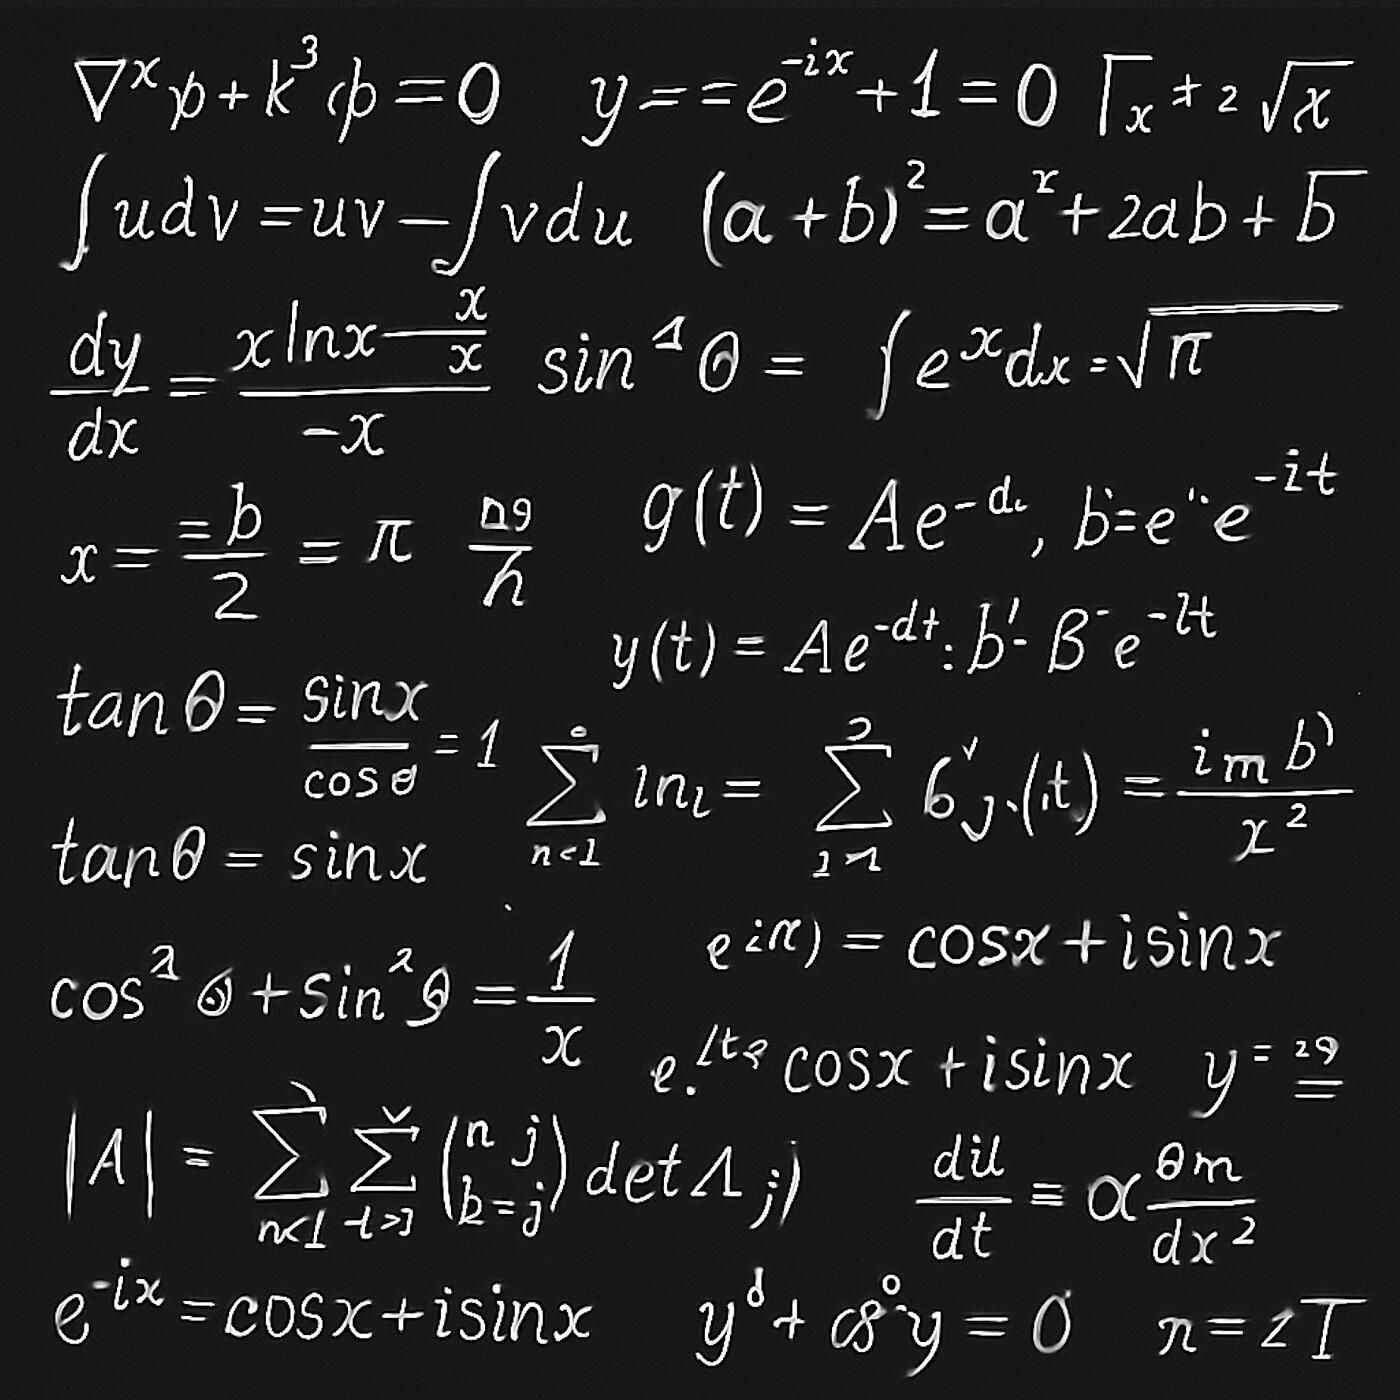 ∇ˣp + k³φ = 0 y = = e⁻ⁱˣ + 1 = 0 Γx + 2 √x
∫udv = uv − ∫vdu (a + b)² = aʳ + 2ab + b
dy/dx = (x ln x − x/x)/(−x) sin θ = ∫eˣdx = √π
x = (= b)/2 = π g(t) = Ae⁻ᵈ, b = e e⁻ⁱᵗ
y(t) = Ae⁻ᵈᵗ : b' - B⁻e⁻ˡᵗ
tan θ = sin x/cos θ = 1 ∑ n<1 ln = ∑ 6 j.(t) = (im b)/x²
tan θ = sin x
e = cos x + i sin x
cos θ + sin² θ = 1/x
e. cos x + i sin x y = 29
|A| = ∑ n<1 ∑ (n j b = j) det Λ j) du/dt ≡ α θm/dx²
e⁻ⁱˣ = cos x + i sin x yᵈ + y = 0 n = 2T